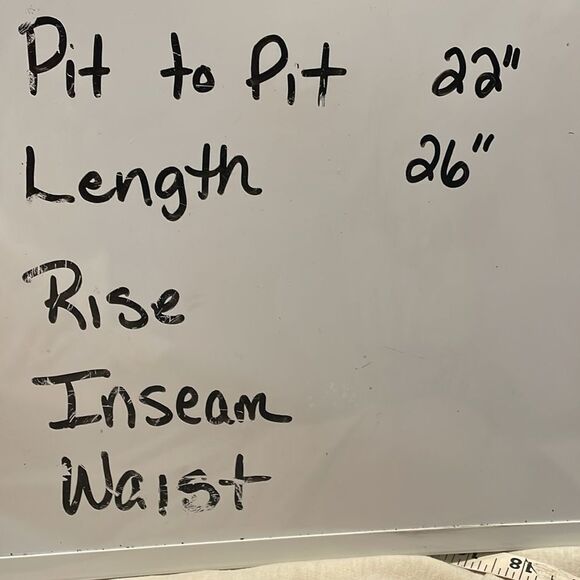 Pit to Pit 22"
Length 26"
Rise
Inseam
Waist
18